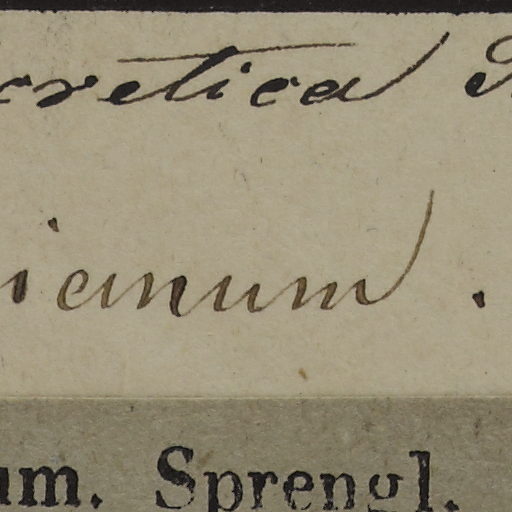 cretica
ianum.
um. Sprengl.